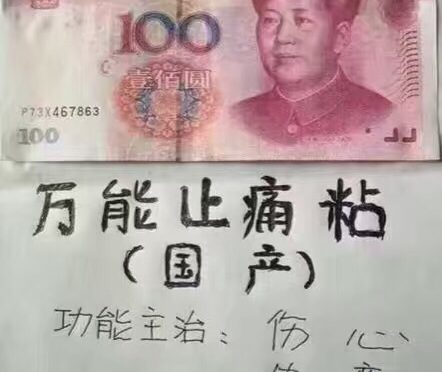 100
壹佰圆
P73X467863
100
万能止痛粘
(国产)
功能主治：伤心